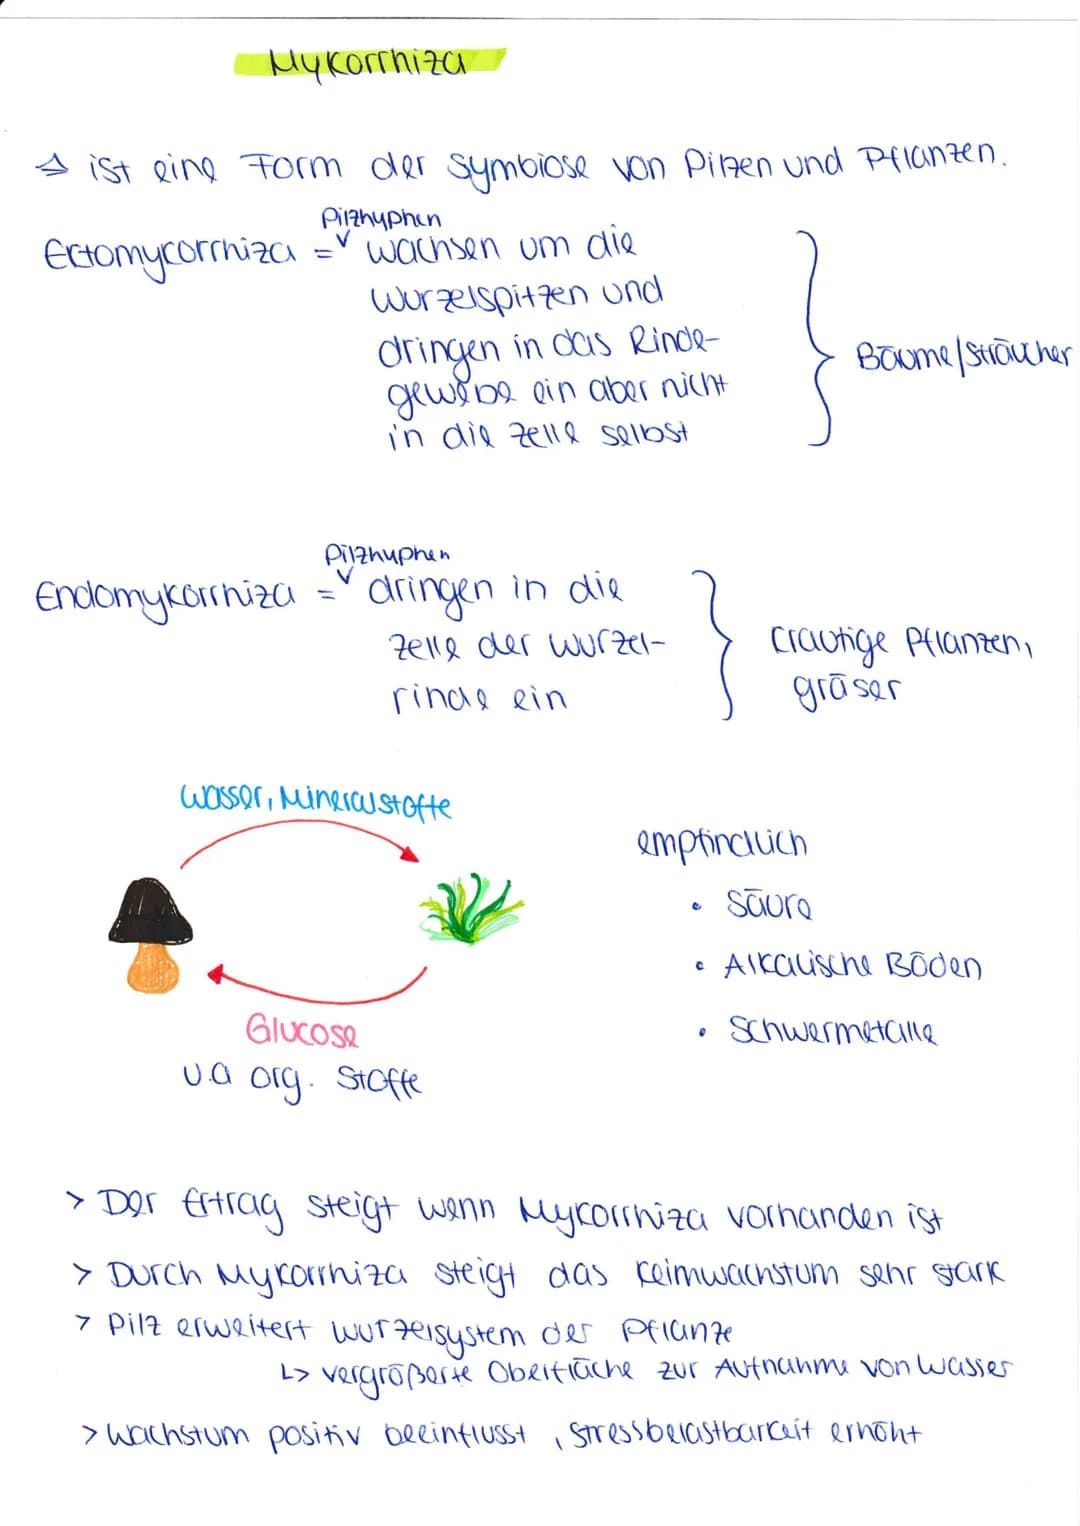 Mykorrhiza
ist eine Form der Symbiose von Pilzen und Pflanzen.
Pilzhyphen
Ectomycorrhiza = wachsen um die
Wurzelspitzen und
dringen in das Rinde-
gewebe ein aber nicht
in die Zelle selbst
Bäume/Sträucher
Pilzhyphen
Endomykorrhiza = dringen in die
Zelle der Wurzel-
rinde ein
crautige Pflanzen,
gräser
Wasser, Mineralstoffe
Glucose
u.a org. Stoffe
empfindlich
• Säure
• Alkalische Böden
• Schwermetalle
> Der Ertrag steigt wenn Mykorrhiza vorhanden ist
> Durch Mykorrhiza steigt das Keimwachstum sehr stark
> Pilz erweitert Wurzelsystem der Pflanze
↳ vergrößerte Oberfläche zur Aufnahme von Wasser
> Wachstum positiv beeinflusst, Stressbelastbarkeit erhöht